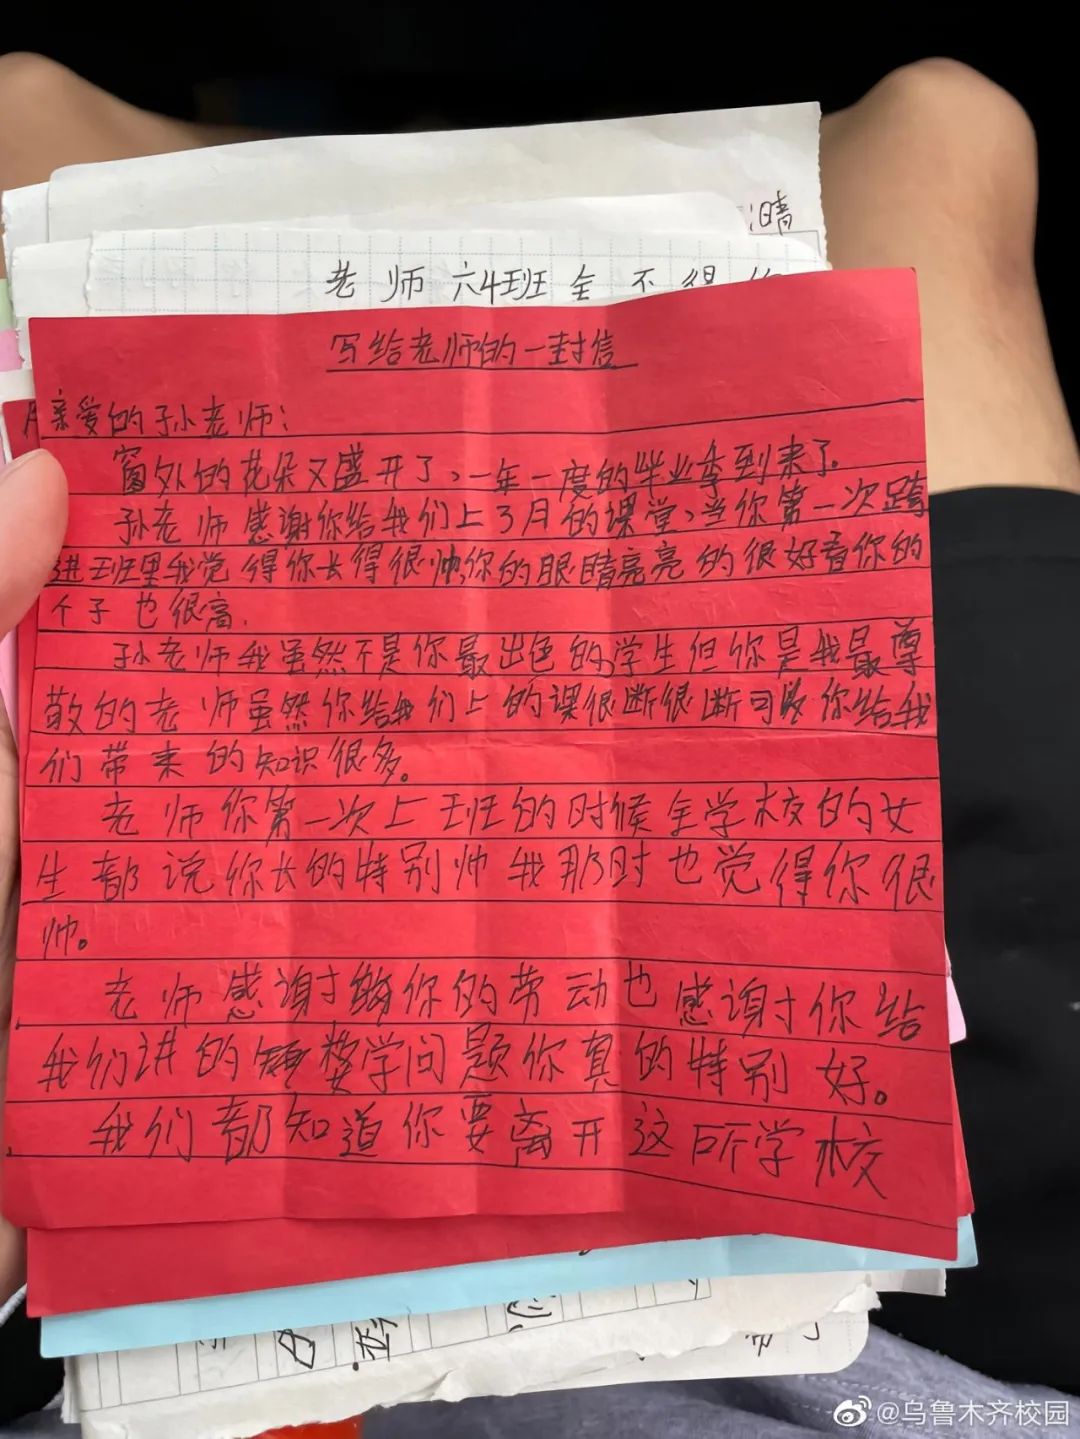 晴
老师六4班全不得
写给老师的一封信
亲爱的孙老师:
窗外的花朵又盛开了、一年一度的毕业季到来了.
孙老师感谢你给我们上3月的课堂、当你第一次踏
进班里我觉得你长得很帅,你的眼睛亮亮的很好看你的
个子也很高.
孙老师我虽然不是你最出色的学生但你是我最尊
敬的老师虽然你给我们上的课很断很断可你给我
们带来的知识很多。
老师你第一次上班的时候全学校的女
生都说你长的特别帅我那时也觉得你很
帅。
老师感谢你的劳动也感谢你给
我们讲的数学问题你真的特别好。
我们都知道你要离开这所学校
@乌鲁木齐校园